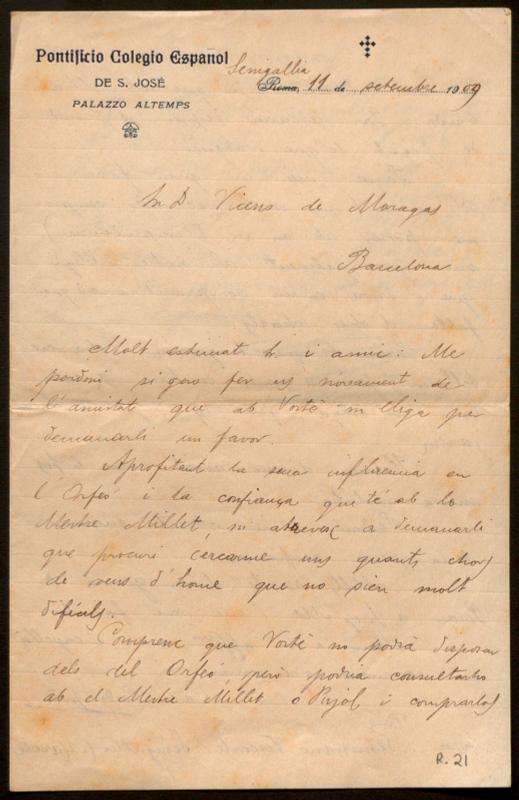 Pontificio Colegio Español
DE S. JOSÉ
PALAZZO ALTEMPS
Senigallia
Roma, 11 de setembre 1909
Sr. D. Vicens de Moragas
Barcelona
Molt estimat Sr. i amic: Me
perdoni si goso fer us novament de
l'amistat que ab Vostè m lliga per
demanarli un favor.
Aprofitant la seva influencia en
l'Orfeó i la confiança que té ab lo
Mestre Millet, m atrevesc a demanarli
que procuri cercarme uns quants chors
de veus d'home que no sien molt
difícils.
Comprenc que Vostè no podrà disposar
dels del Orfeó, però podria consultarho
ab el Mestre Millet o Pujol i comprarlos
R. 21